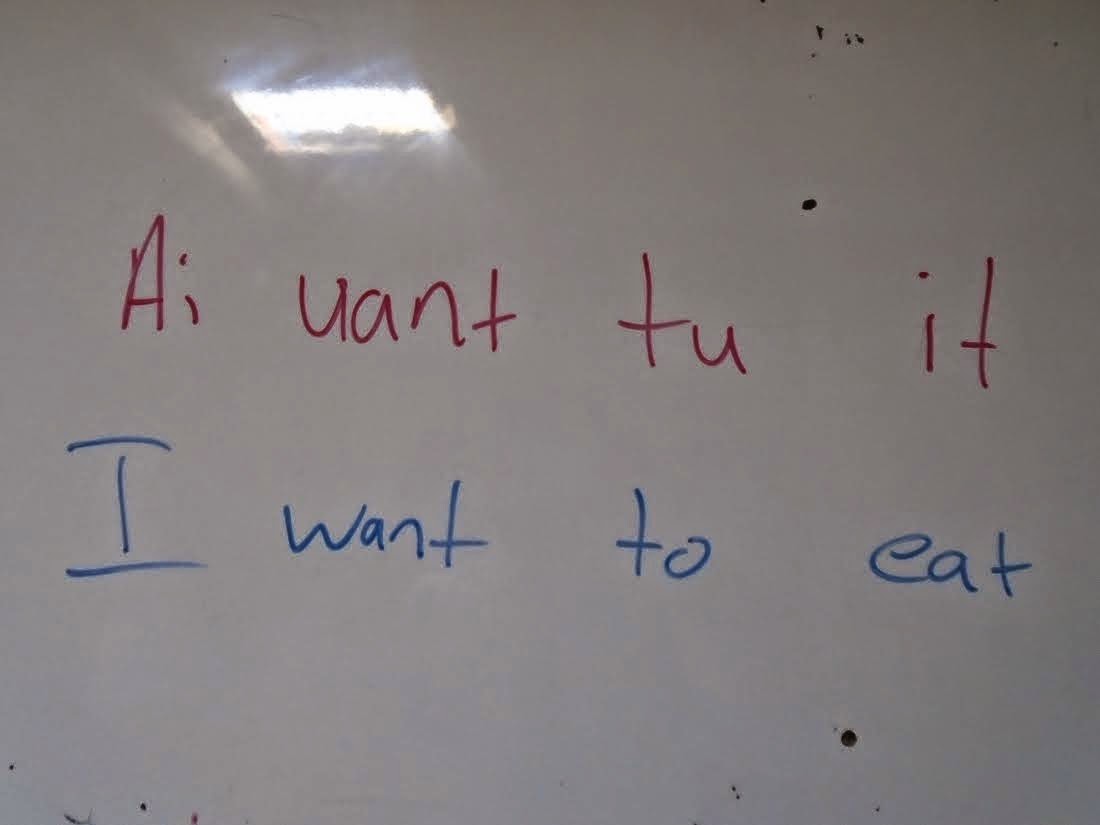 Ai uant tu it
I want to eat